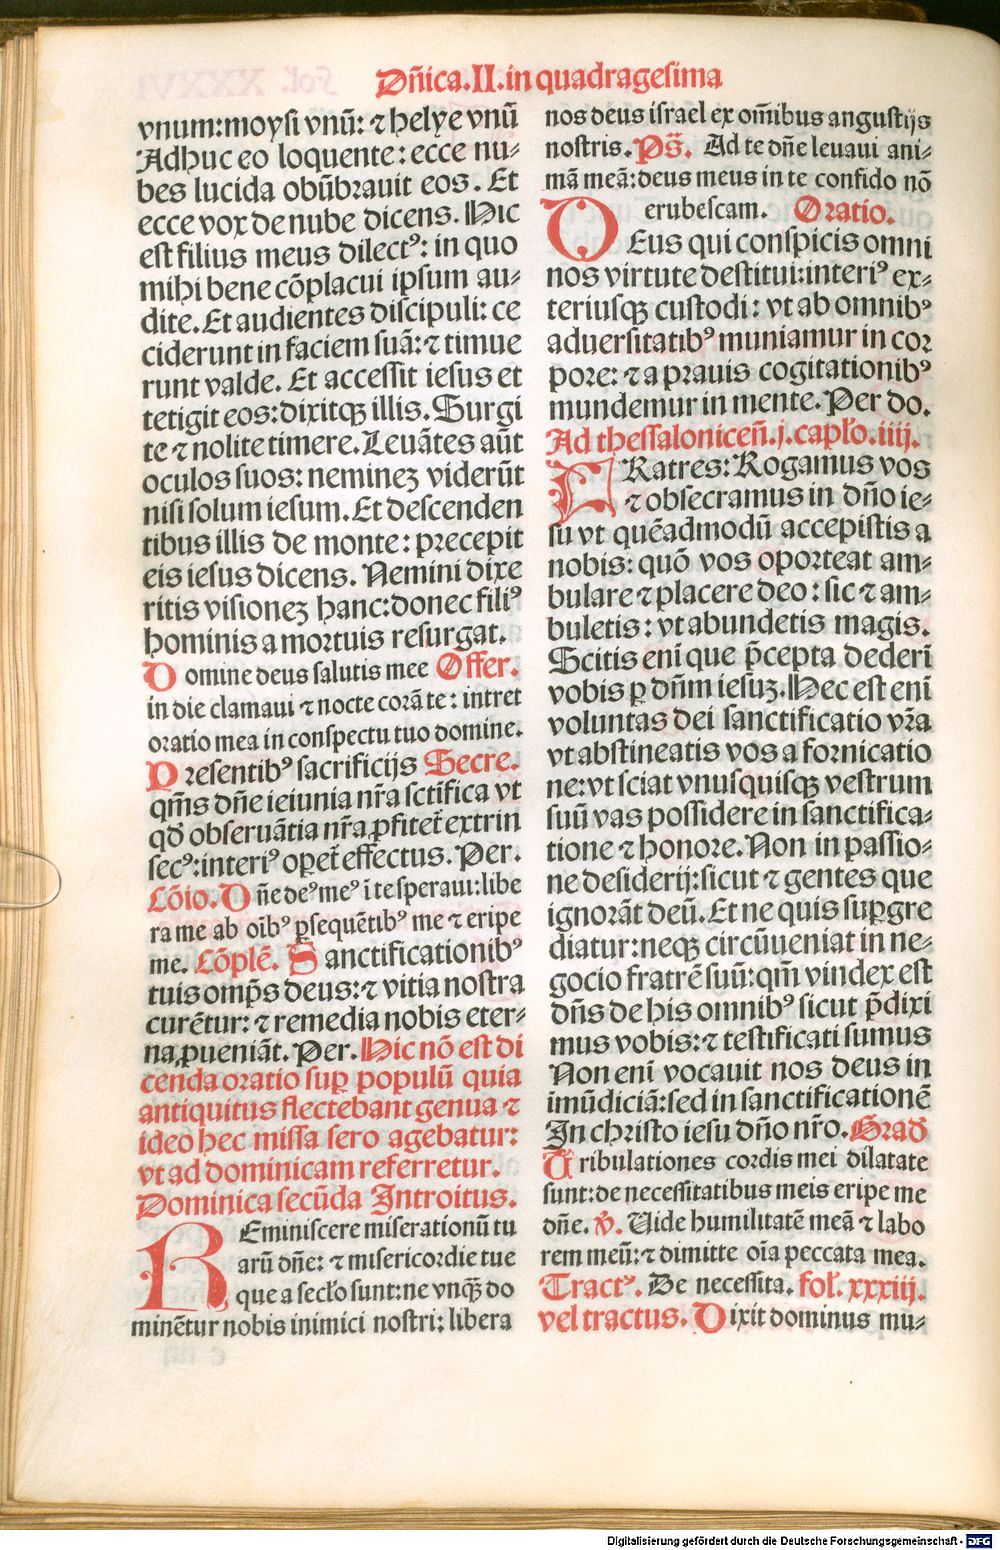 Dñica.II.in quadragesima
vnum:moysi vnũ: ⁊ helye vnũ
Adhuc eo loquente: ecce nu⸗
bes lucida obũbrauit eos. Et
ecce vox de nube dicens. Hic
est filius meus dilectꝰ: in quo
mihi bene cõplacui ipsum au⸗
dite. Et audientes discipuli: ce
ciderunt in faciem suã: ⁊ timue
runt valde. Et accessit iesus et
tetigit eos: dixitqꝫ illis. Surgi
te ⁊ nolite timere. Leuãtes aũt
oculos suos: nemineꝫ viderũt
nisi solum iesum. Et descenden
tibus illis de monte: precepit
eis iesus dicens. Nemini dixe
ritis visioneꝫ hanc: donec filiꝰ
hominis a mortuis resurgat.
Domine deus salutis mee Offer.
in die clamaui ⁊ nocte corã te: intret
oratio mea in conspectu tuo domine.
Presentibꝰ sacrificijs Secre.
qm̃s dñe ieiunia nr̃a sctĩfica vt
qđ obseruãtia nr̃a ꝓfitet̃ extrin
secꝰ: interiꝰ oꝑet̃ effectus. Per.
Cõio. Dñe deꝰ meꝰ ĩ te speraui: libe
ra me ab oĩbꝰ ꝑsequẽtibꝰ me ⁊ eripe
me. Cõplẽ. Sanctificationibꝰ
tuis omp̃s deus: ⁊ vitia nostra
curẽtur: ⁊ remedia nobis eter⸗
na ꝓueniãt. Per. Hic nõ est di
cenda oratio suꝑ populũ quia
antiquitus flectebant genua ⁊
ideo hec missa sero agebatur:
vt ad dominicam referretur.
Dominica secũda Introitus.
Reminiscere miserationũ tu
arũ dñe: ⁊ misericordie tue
que a secło sunt: ne vnqꝫ̃ do
minẽtur nobis inimici nostri: libera
nos deus israel ex om̃ibus angustijs
nostris. Ps̃. Ad te dñe leuaui ani⸗
mã meã: deus meus in te confido nõ
erubescam. Oratio.
DEus qui conspicis omni
nos virtute destitui: interiꝰ ex⸗
teriusqꝫ custodi: vt ab omnibꝰ
aduersitatibꝰ muniamur in cor
pore: ⁊ a prauis cogitationibꝰ
mundemur in mente. Per do.
Ad thessaloniceñ.j.capło.iiij.
FRatres: Rogamus vos
⁊ obsecramus in dño ie⸗
su vt quẽadmodũ accepistis a
nobis: quõ vos oporteat am⸗
bulare ⁊ placere deo: sic ⁊ am⸗
buletis: vt abundetis magis.
Scitis enĩ que p̃cepta dederĩ
vobis ꝑ dñm iesuꝫ. Hec est enĩ
voluntas dei sanctificatio vr̃a
vt abstineatis vos a fornicatio
ne: vt sciat vnusquisqꝫ vestrum
suũ vas possidere in sanctifica⸗
tione ⁊ honore. Non in passio⸗
ne desiderij: sicut ⁊ gentes que
ignorãt deũ. Et ne quis suꝑgre
diatur: neqꝫ circũueniat in ne⸗
gocio fratrẽ suũ: qm̃ vindex est
dñs de his omnibꝰ sicut p̃dixi
mus vobis: ⁊ testificati sumus
Non enĩ vocauit nos deus in
ĩmũdiciã: sed in sanctificationẽ
In christo iesu dño nr̃o. Građ
Tribulationes cordis mei dilatate
sunt: de necessitatibus meis eripe me
dñe. ꝟ. Uide humilitatẽ meã ⁊ labo
rem meũ: ⁊ dimitte oĩa peccata mea.
Tractꝰ. De necessita. foł. xxxiij.
vel tractus. Dixit dominus mu⸗
Digitalisierung gefördert durch die Deutsche Forschungsgemeinschaft - DFG